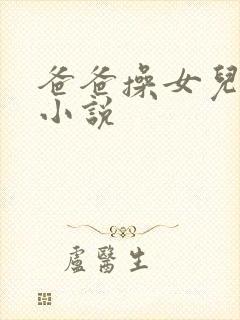 爸爸操女兒
小說
盧醫生